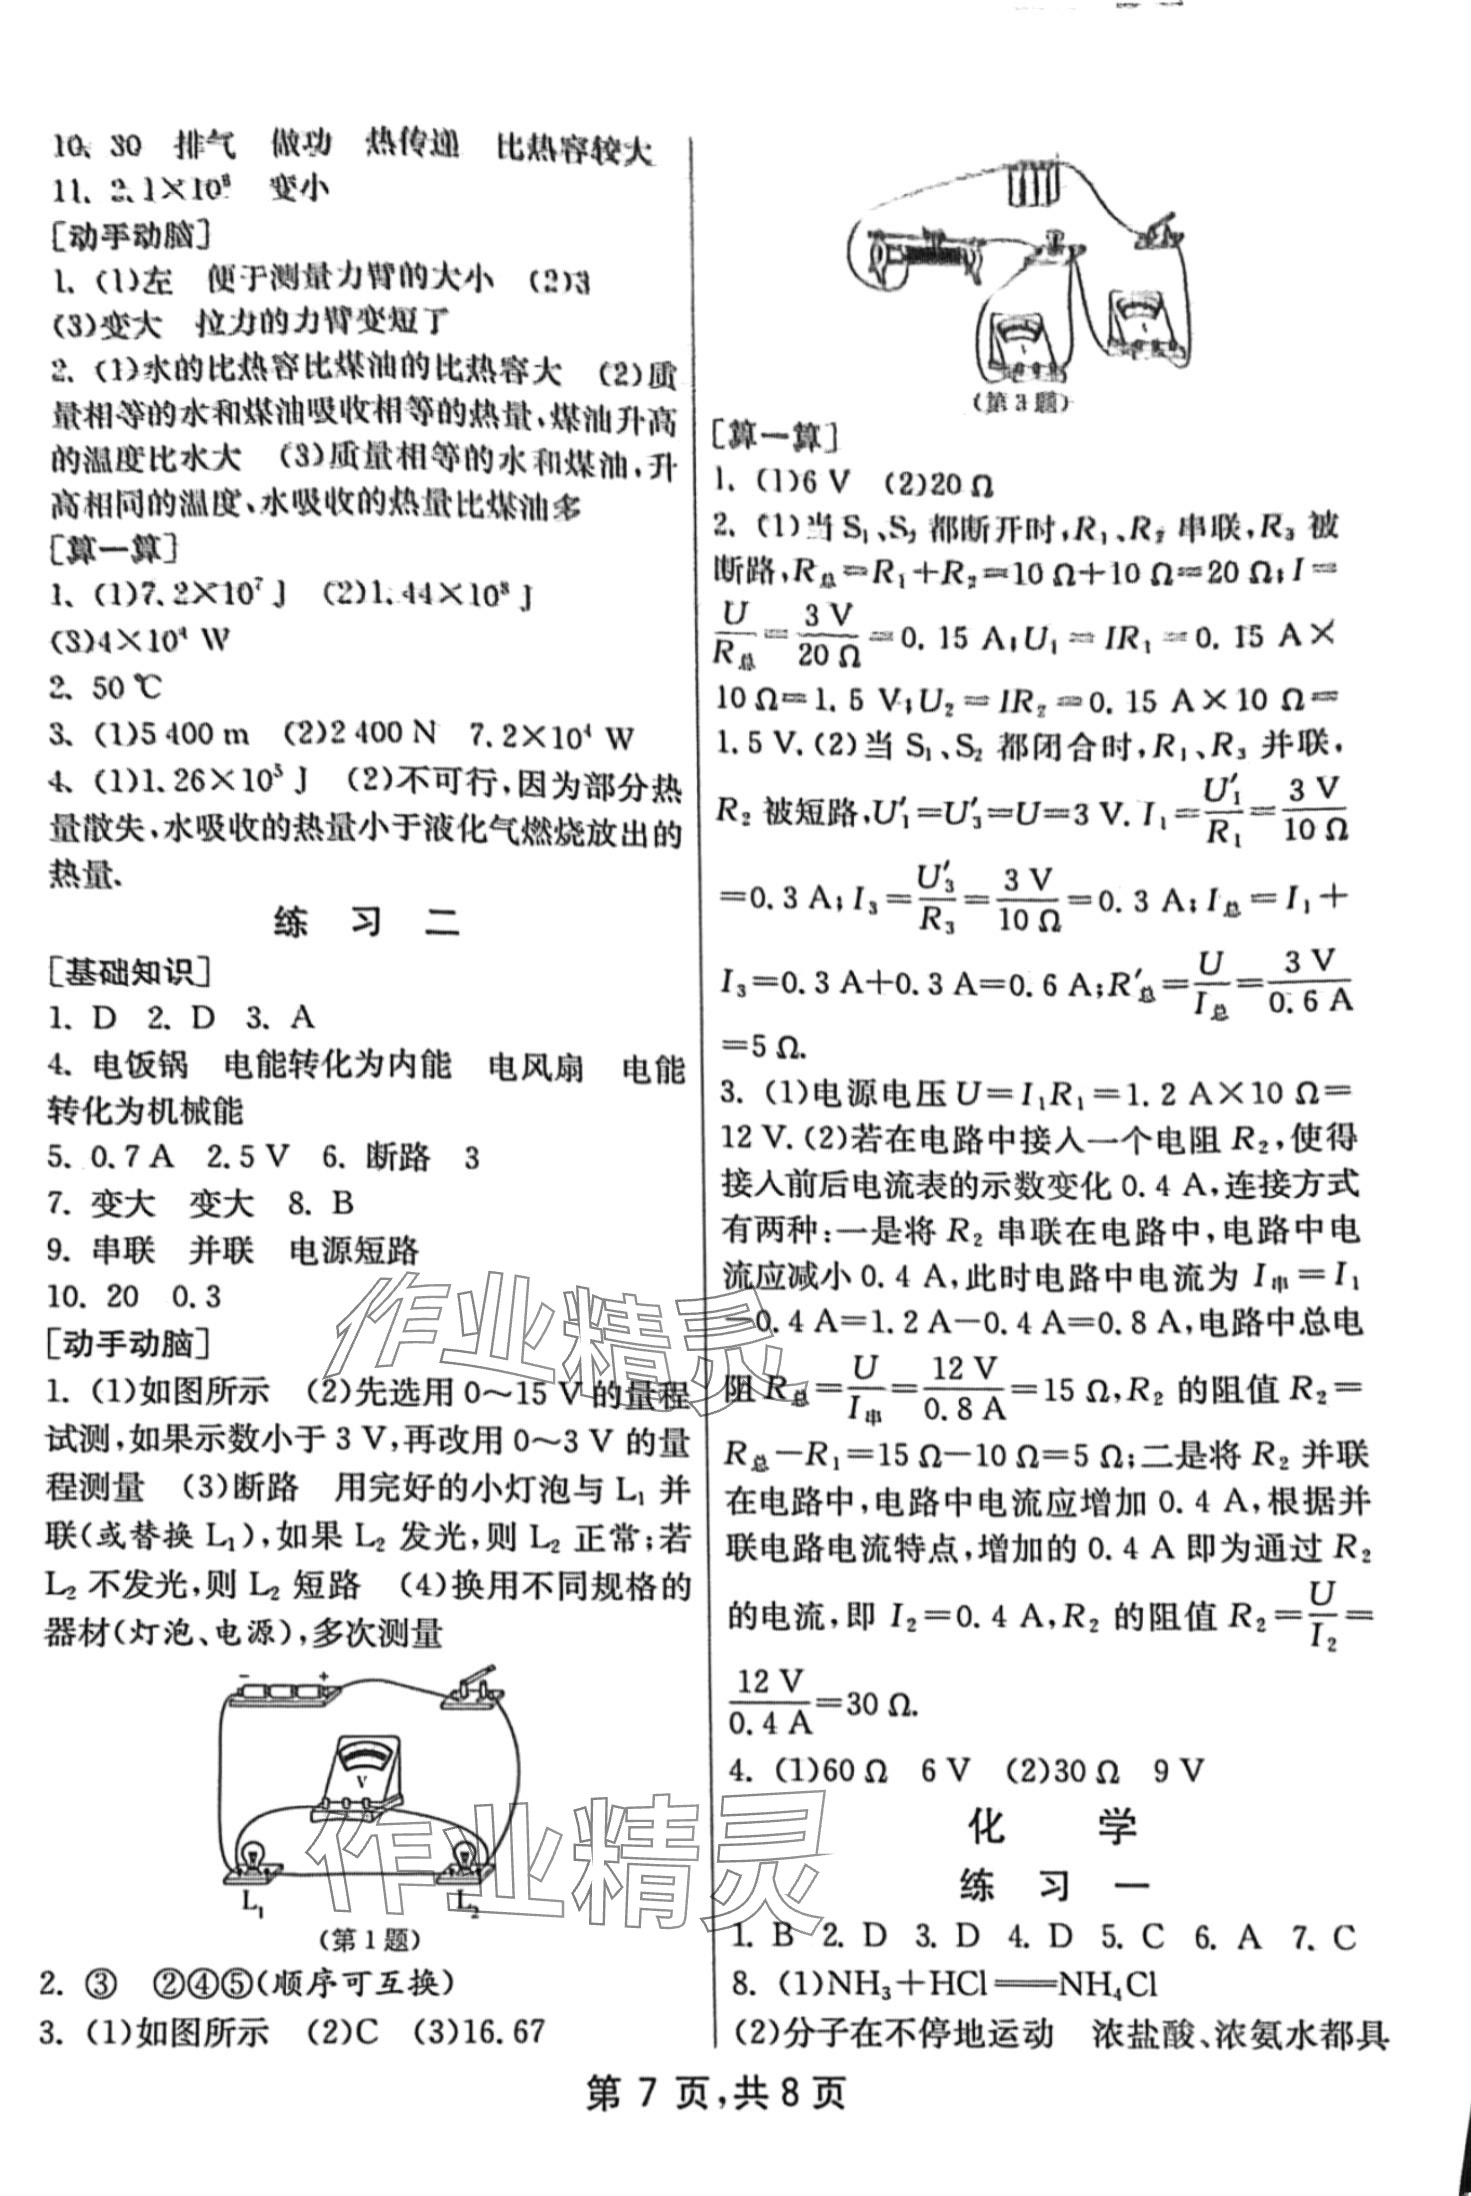 10. 30 排气 做功 热传递 比热容较大
11. 2.1×10⁸ 变小
[动手动脑]
1. (1)左 便于测量力臂的大小 (2)3
(3)变大 拉力的力臂变短了
2. (1)水的比热容比煤油的比热容大 (2)质
量相等的水和煤油吸收相等的热量,煤油升高
的温度比水大 (3)质量相等的水和煤油,升
高相同的温度,水吸收的热量比煤油多
[算一算]
1. (1)7.2×10⁷ J (2)1.44×10⁸ J
(3)4×10⁴ W
2. 50 ℃
3. (1)5 400 m (2)2 400 N 7.2×10⁴ W
4. (1)1.26×10⁵ J (2)不可行,因为部分热
量散失,水吸收的热量小于液化气燃烧放出的
热量.
练 习 二
[基础知识]
1. D 2. D 3. A
4. 电饭锅 电能转化为内能 电风扇 电能
转化为机械能
5. 0.7 A 2.5 V 6. 断路 3
7. 变大 变大 8. B
9. 串联 并联 电源短路
10. 20 0.3
[动手动脑]
1. (1)如图所示 (2)先选用 0～15 V 的量程
试测,如果示数小于 3 V,再改用 0～3 V 的量
程测量 (3)断路 用完好的小灯泡与 L₁ 并
联(或替换 L₁),如果 L₂ 发光,则 L₂ 正常;若
L₂ 不发光,则 L₂ 短路 (4)换用不同规格的
器材(灯泡、电源),多次测量
− +
V
L₁ L₂
(第 1 题)
2. ③ ②④⑤(顺序可互换)
3. (1)如图所示 (2)C (3)16.67
(第 3 题)
[算一算]
1. (1)6 V (2)20 Ω
2. (1)当 S₁、S₂ 都断开时,R₁、R₂ 串联,R₃ 被
断路,R总=R₁+R₂=10 Ω+10 Ω=20 Ω;I=
U/R总=3 V/20 Ω=0.15 A;U₁=IR₁=0.15 A×
10 Ω=1.5 V;U₂=IR₂=0.15 A×10 Ω=
1.5 V.(2)当 S₁、S₂ 都闭合时,R₁、R₃ 并联,
R₂ 被短路,U′₁=U′₃=U=3 V.I₁=U′₁/R₁=3 V/10 Ω
=0.3 A;I₃=U′₃/R₃=3 V/10 Ω=0.3 A;I总=I₁+
I₃=0.3 A+0.3 A=0.6 A;R′总=U/I总=3 V/0.6 A
=5 Ω.
3. (1)电源电压 U=I₁R₁=1.2 A×10 Ω=
12 V.(2)若在电路中接入一个电阻 R₂,使得
接入前后电流表的示数变化 0.4 A,连接方式
有两种:一是将 R₂ 串联在电路中,电路中电
流应减小 0.4 A,此时电路中电流为 I串=I₁
−0.4 A=1.2 A−0.4 A=0.8 A,电路中总电
阻 R总=U/I串=12 V/0.8 A=15 Ω,R₂ 的阻值 R₂=
R总−R₁=15 Ω−10 Ω=5 Ω;二是将 R₂ 并联
在电路中,电路中电流应增加 0.4 A,根据并
联电路电流特点,增加的 0.4 A 即为通过 R₂
的电流,即 I₂=0.4 A,R₂ 的阻值 R₂=U/I₂=
12 V/0.4 A=30 Ω.
4. (1)60 Ω 6 V (2)30 Ω 9 V
化 学
练 习 一
1. B 2. D 3. D 4. D 5. C 6. A 7. C
8. (1)NH₃+HCl══NH₄Cl
(2)分子在不停地运动 浓盐酸、浓氨水都具
第 7 页,共 8 页
作业精灵
作业精灵